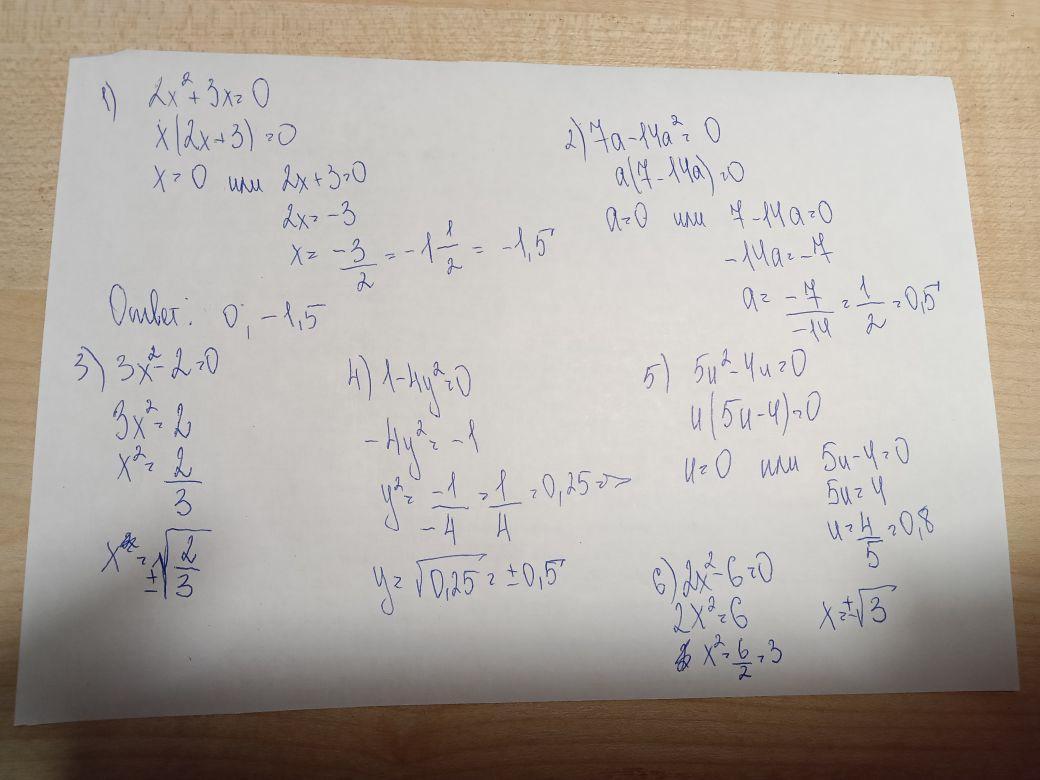 1) 2x² + 3x = 0
x(2x+3) = 0
x = 0 или 2x+3=0
2x = -3
x = -3/2 = -1 1/2 = -1,5
Ответ: 0; -1,5
2) 7a - 14a² = 0
a(7 - 14a) = 0
a=0 или 7-14a=0
-14a = -7
a = -7/-14 = 1/2 = 0,5
3) 3x² - 2 = 0
3x² = 2
x² = 2/3
x = ±√(2/3)
4) 1 - 4y² = 0
-4y² = -1
y² = -1/-4 = 1/4 = 0,25 =>
y = √0,25 = ±0,5
5) 5u² - 4u = 0
u(5u-4) = 0
u=0 или 5u-4=0
5u=4
u = 4/5 = 0,8
6) 2x² - 6 = 0
2x² = 6
x² = 6/2 = 3
x = ±√3